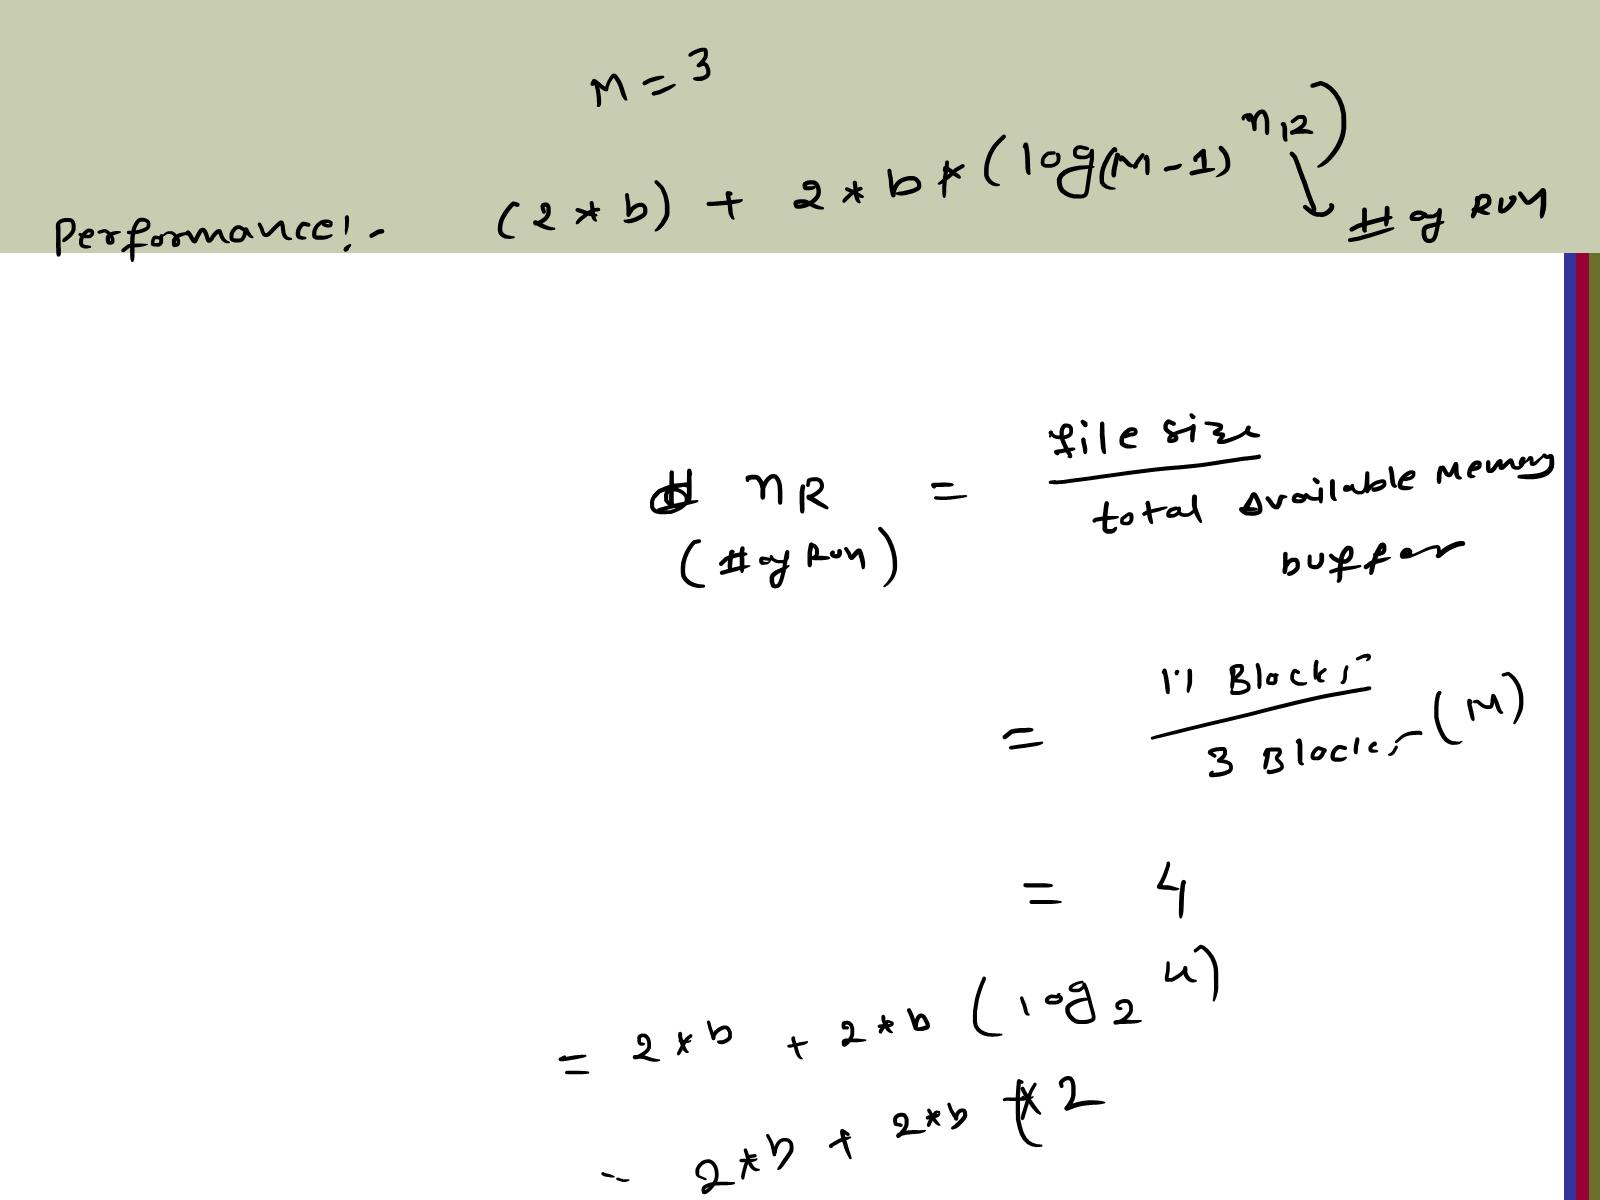 M = 3
Performance! - (2 * b) + 2 * b * (log(M-1) n12)
# of Run
nR = file size
(# of Run) total Available Memory
buffer
= 11 Blocks
3 Blocks (M)
= 4
= 2 * b + 2 * b (log2 4)
2 * b + 2 * b * 2